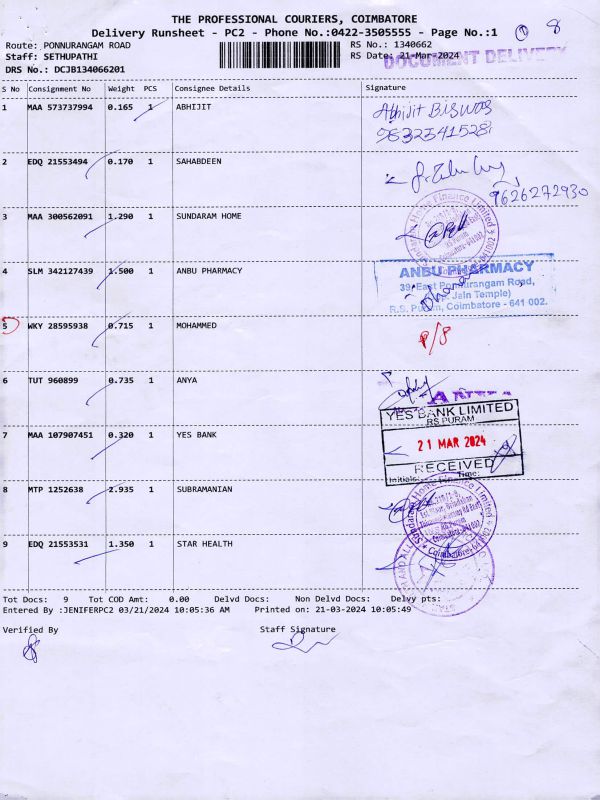 THE PROFESSIONAL COURIERS, COIMBATORE
Delivery Runsheet - PC2 - Phone No.:0422-3505555 - Page No.:1
1 8
Route: PONNURANGAM ROAD RS No.: 1340662
Staff: SETHUPATHI RS Date: 21-Mar-2024
DOCUMENT DELIVERY
DRS No.: DCJB134066201
S No Consignment No Weight PCS Consignee Details Signature
1 MAA 573737994 0.165 1 ABHIJIT
Abhijit BISWAS
9832541528
2 EDQ 21553494 0.170 1 SAHABDEEN
9626272930
3 MAA 300562091 1.290 1 SUNDARAM HOME
Sundaram Home Finance Limited
4 SLM 342127439 1.500 1 ANBU PHARMACY
ANBU PHARMACY
39, East Ponnurangam Road,
Jain Temple)
R.S. Puram, Coimbatore - 641 002.
5 WKY 28595938 0.715 1 MOHAMMED
P/P
6 TUT 960899 0.735 1 ANYA
7 MAA 107907451 0.320 1 YES BANK
YES BANK LIMITED
RS PURAM
21 MAR 2024
RECEIVED
Initials: Time:
8 MTP 1252638 2.935 1 SUBRAMANIAN
Sundaram Home Finance Limited
9 EDQ 21553531 1.350 1 STAR HEALTH
Tot Docs: 9 Tot COD Amt: 0.00 Delvd Docs: Non Delvd Docs: Delvy pts:
Entered By :JENIFERPC2 03/21/2024 10:05:36 AM Printed on: 21-03-2024 10:05:49
Verified By Staff Signature